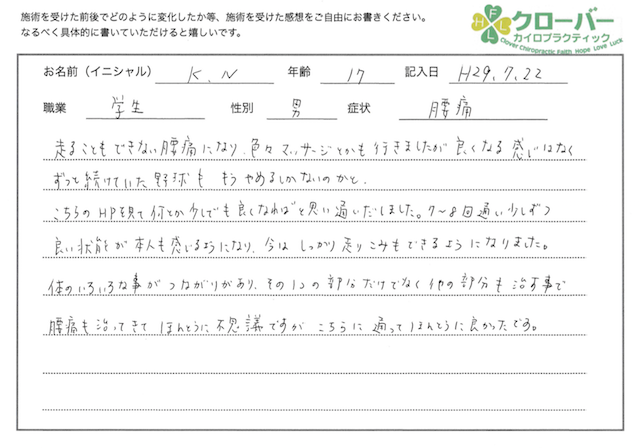 施術を受けた前後でどのように変化したか等、施術を受けた感想をご自由にお書きください。
なるべく具体的に書いていただけると嬉しいです。
HFLL
クローバー
カイロプラクティック
Clover Chiropractic Faith Hope Love Luck
お名前（イニシャル） K.N 年齢 17 記入日 H29.7.22
職業 学生 性別 男 症状 腰痛
走ることもできない腰痛になり、色々マッサージとかも行きましたが良くなる感じはなく
ずっと続けていた野球も もうやめるしかないのかと、
こちらのHPを見て何とか少しでも良くなればと思い通いだしました。7〜8回通い少しずつ
良い状態をが本人も感じるようになり、今はしっかり走りこみもできるようになりました。
体のいろいろな事がつながりがあり、その1つの部分だけでなく他の部分も治す事で
腰痛も治ってきてほんとうに不思議ですがこちらに通ってほんとうに良かったです。